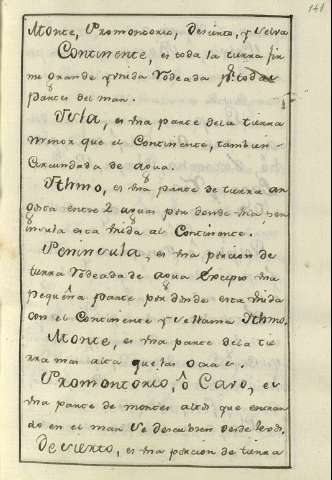 141
Monte, Promontorio, Desierto, y Selva
Continente, es toda la tierra fir
me grande y vnida rodeada pr. todas
partes del mar.
Ysla, es vna parte dela tierra
menor que el Continente, tambien
circundada de agua.
Ithmo, es vna parte de tierra an
gosta entre 2 aguas por donde vna pen
insula esta vnida al Continente.
Peninsula, es vna porcion de
tierra rodeada de agua excepto vna
pequeña parte por donde esta vnida
con el Continente y se llama Ithmo.
Monte, es vna parte dela tie
rra mas alta que las otras.
Promontorio, ô Cavo, es
vna parte de montes altos que entran
do en el mar se descubren desde lexos.
Desierto, es vna porcion de tierra